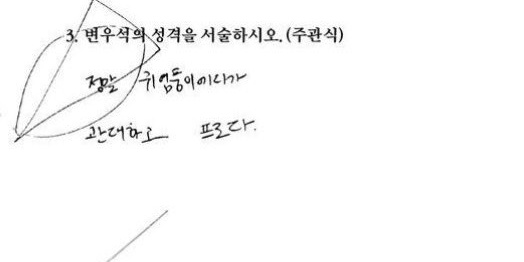 3. 변우석의 성격을 서술하시오. (주관식)
정말 귀염둥이에다가
관대하고 프로다.